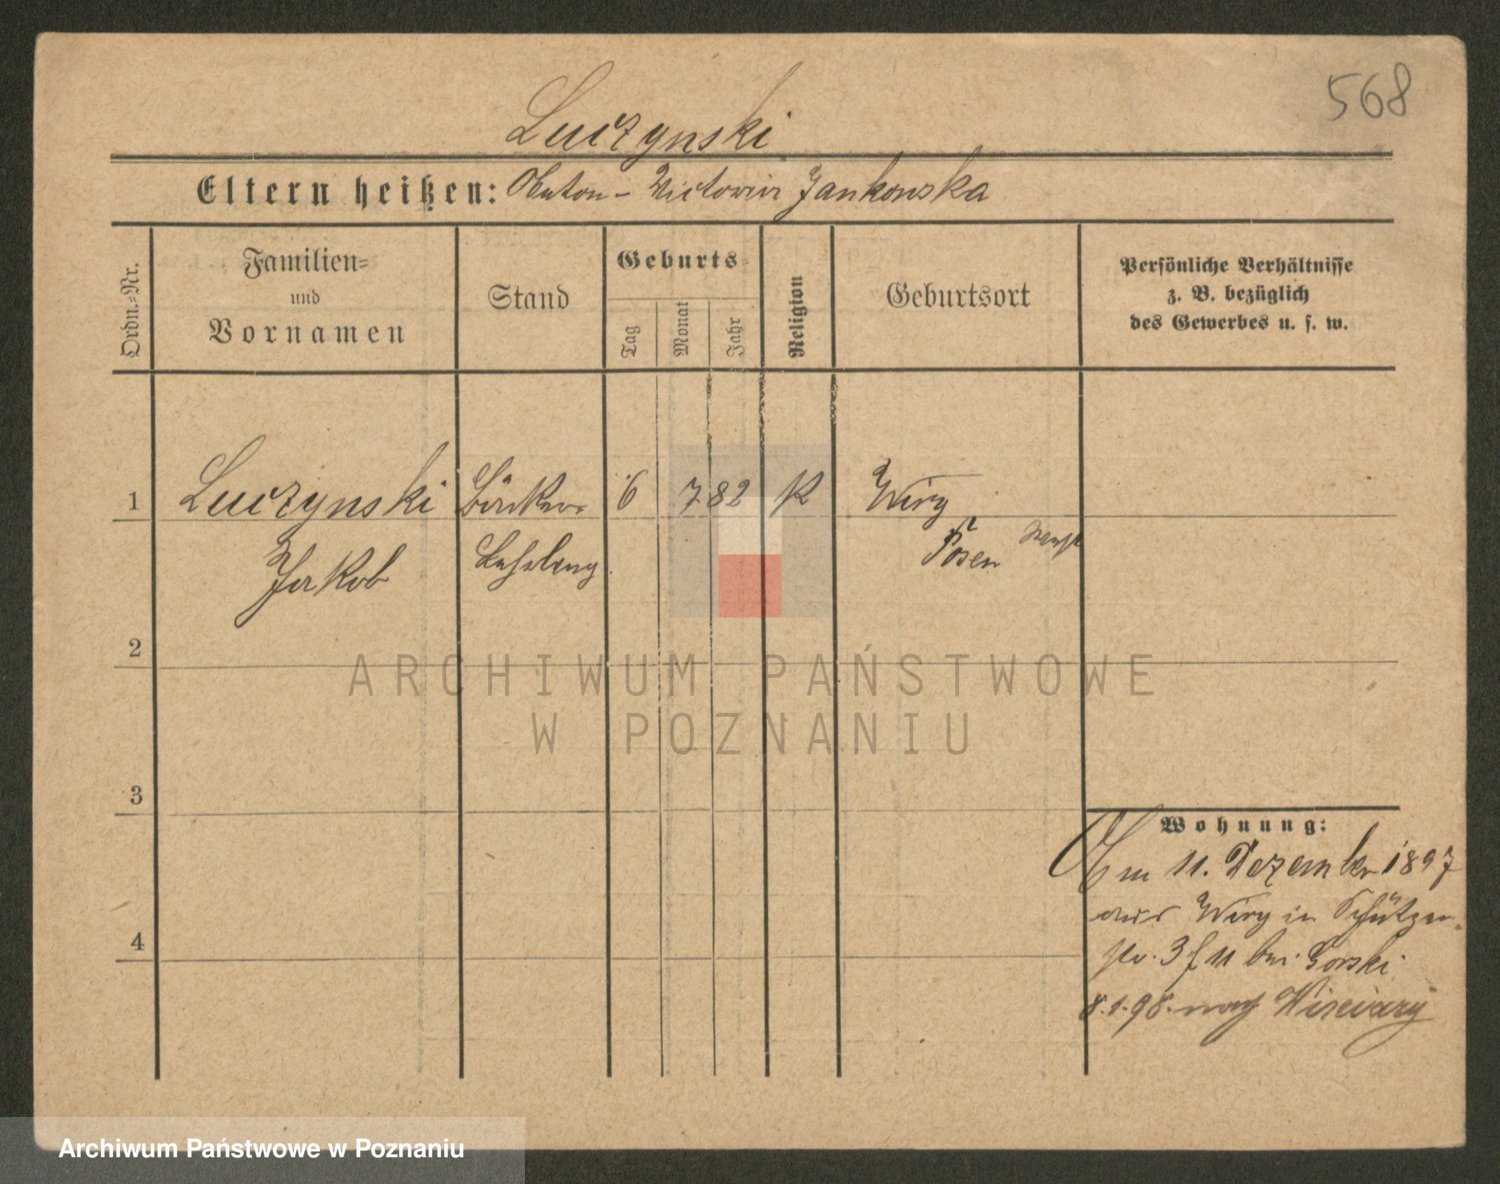 568
Luczynski
Eltern heißen: Anton - Victoria Jankowska
Ordn.-Nr.
Familien-
und
Vornamen
Stand
Geburts-
Tag
Monat
Jahr
Religion
Geburtsort
Persönliche Verhältnisse
z. B. bezüglich
des Gewerbes u. s. w.
1 Luczynski Bäcker- 6 7 82 K Wiry
Jakob Lehrling Posen West
2
ARCHIWUM PAŃSTWOWE
W POZNANIU
3
Wohnung:
Am 11. Dezember 1897
aus Wiry in Schützen-
str. 3 f 11 bei Gorski
4
8.1.98. nach
Archiwum Państwowe w Poznaniu